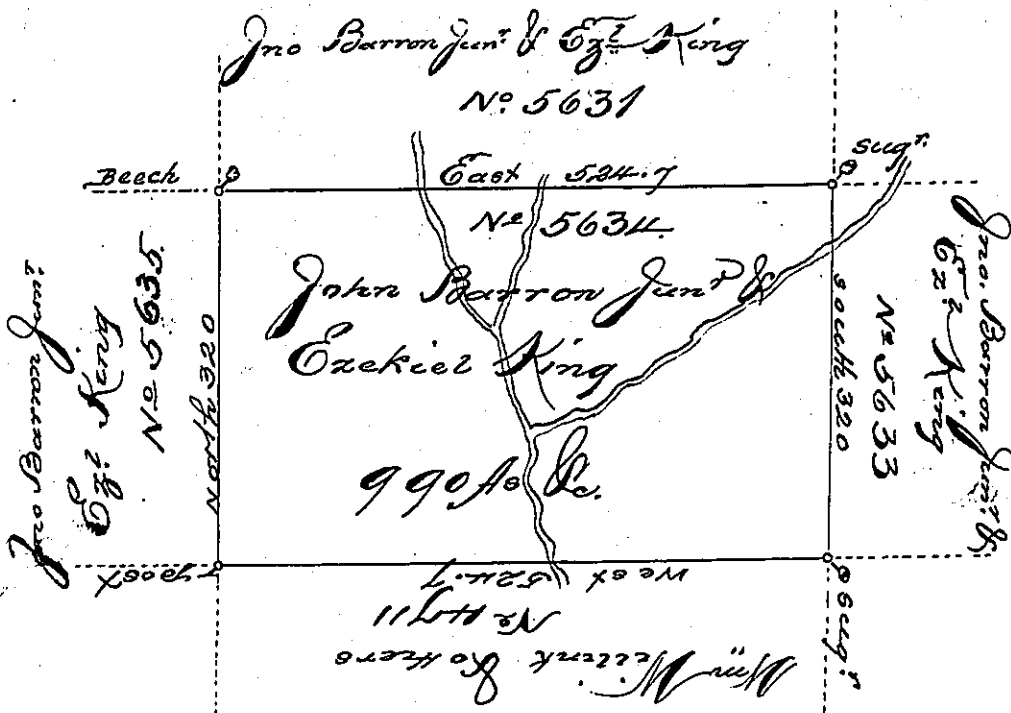 Jno Barron Junr. & Ezl. King
No. 5631
Beech
East 524.7
Sugr.
No 5634.
John Barron Junr &
Ezekiel King
990 As &c.
Jno Barron Junr.
Ezl King
No 5635.
North 320
South 320
No 5633
Jno. Barron Junr. &
Ezl. King
Post
West 524.7
Sugr
No 4711
Wm Willink & others